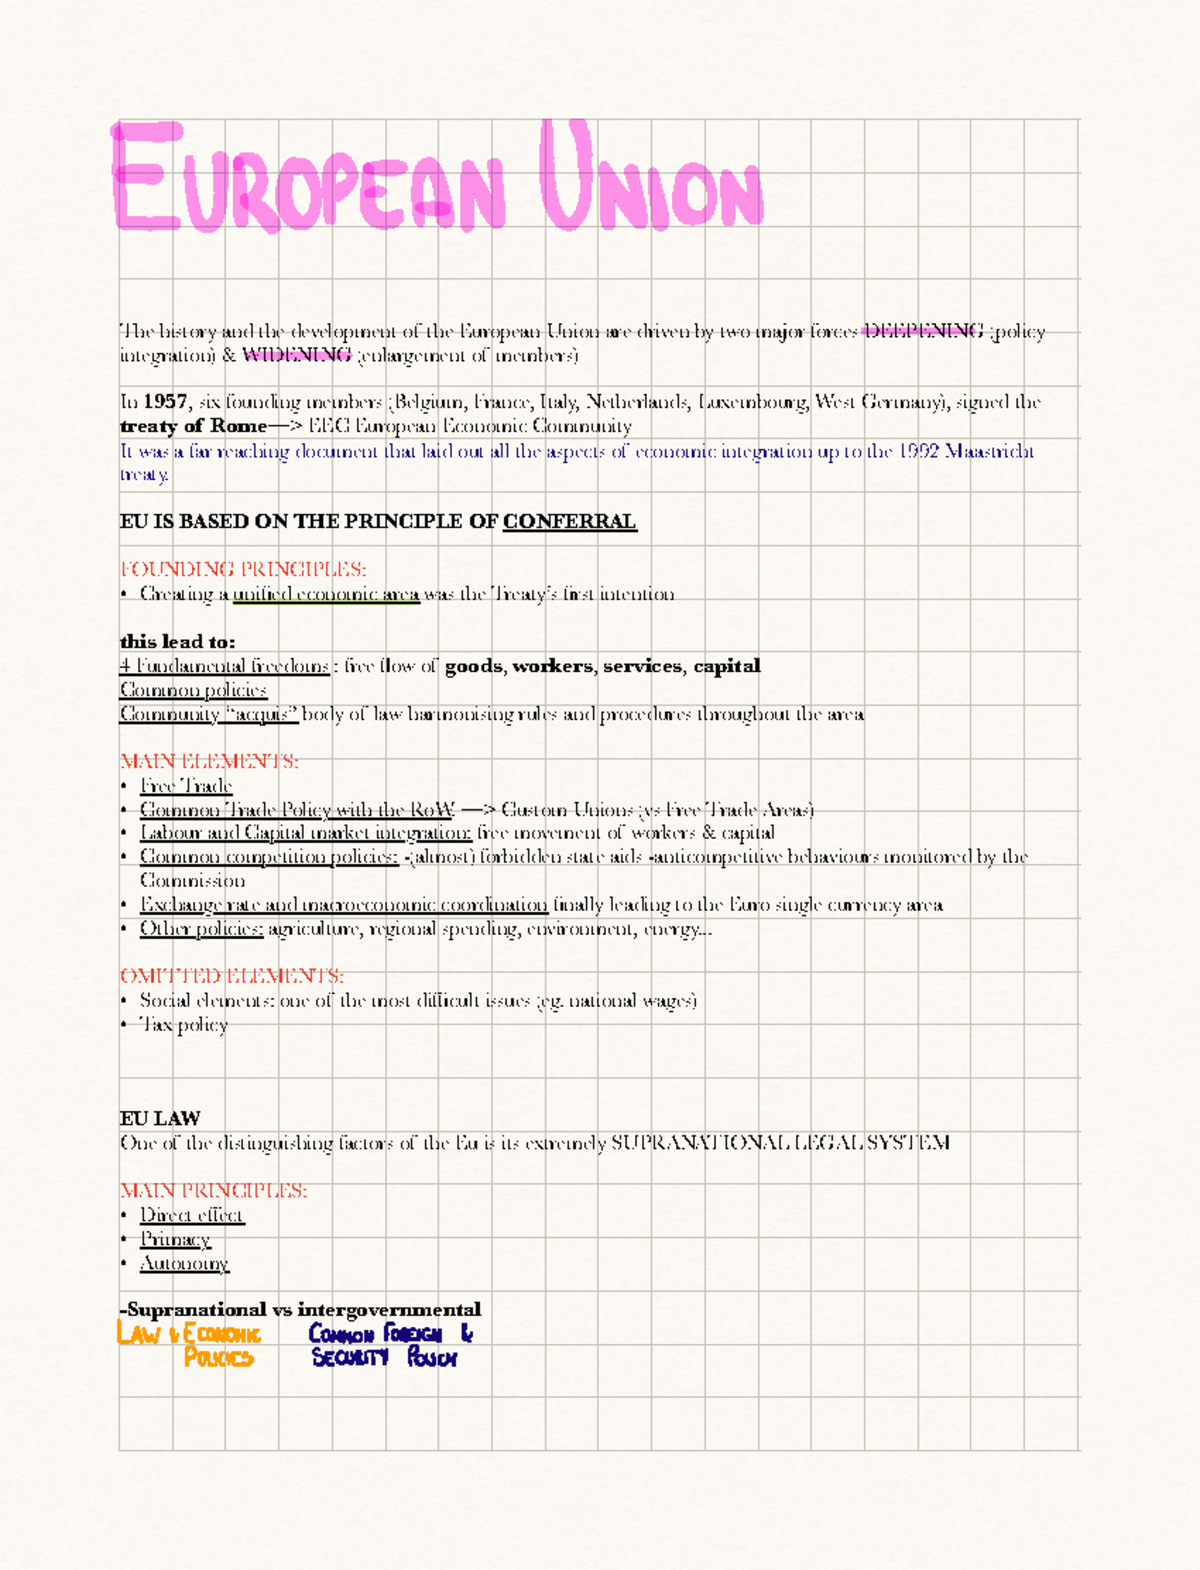 EUROPEAN UNION
The history and the development of the European Union are driven by two major forces DEEPENING (policy
integration) & WIDENING (enlargement of members)
In 1957, six founding members (Belgium, France, Italy, Netherlands, Luxembourg, West Germany), signed the
treaty of Rome—> EEC European Economic Community
It was a far reaching document that laid out all the aspects of economic integration up to the 1992 Maastricht
treaty.
EU IS BASED ON THE PRINCIPLE OF CONFERRAL
FOUNDING PRINCIPLES:
• Creating a unified economic area was the Treaty's first intention
this lead to:
4 Fundamental freedoms : free flow of goods, workers, services, capital
Common policies
Community “acquis” body of law harmonising rules and procedures throughout the area
MAIN ELEMENTS:
• Free Trade
• Common Trade Policy with the RoW. —> Custom Unions (vs Free Trade Areas)
• Labour and Capital market integration: free movement of workers & capital
• Common competition policies: -(almost) forbidden state aids -anticompetitive behaviours monitored by the
Commission
• Exchange rate and macroeconomic coordination finally leading to the Euro single currency area
• Other policies: agriculture, regional spending, environment, energy...
OMITTED ELEMENTS:
• Social elements: one of the most difficult issues (eg. national wages)
• Tax policy
EU LAW
One of the distinguishing factors of the Eu is its extremely SUPRANATIONAL LEGAL SYSTEM
MAIN PRINCIPLES:
• Direct effect
• Primacy
• Autonomy
-Supranational vs intergovernmental
LAW & ECONOMIC COMMON FOREIGN &
POLICIES SECURITY POLICY